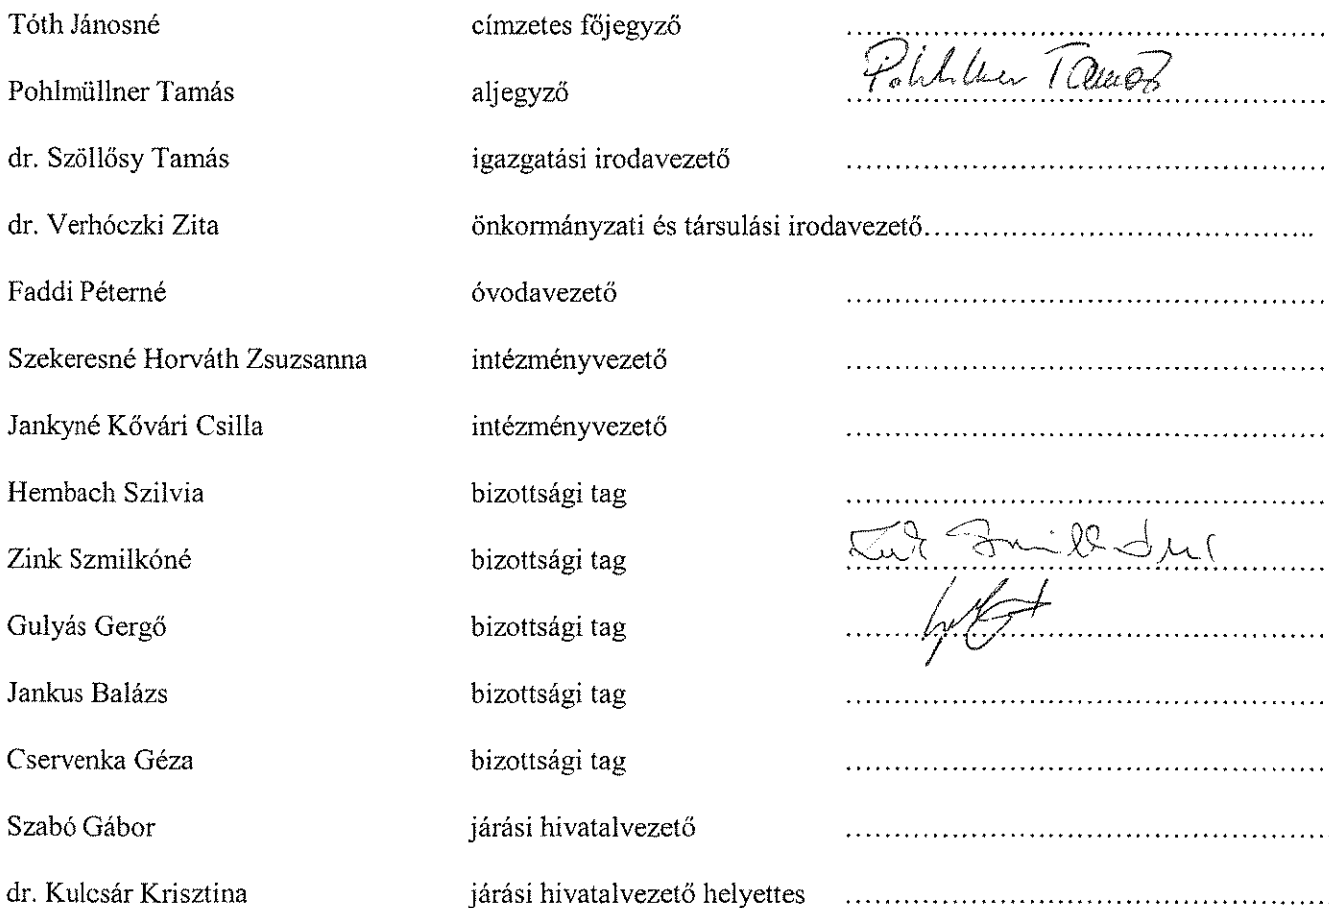 Tóth Jánosné címzetes főjegyző ........................................
Pohlmüllner Tamás aljegyző Pohlmüllner Tamás
dr. Szöllősy Tamás igazgatási irodavezető ........................................
dr. Verhóczki Zita önkormányzati és társulási irodavezető........................................
Faddi Péterné óvodavezető ........................................
Szekeresné Horváth Zsuzsanna intézményvezető ........................................
Jankyné Kővári Csilla intézményvezető ........................................
Hembach Szilvia bizottsági tag ........................................
Zink Szmilkóné bizottsági tag ........................................
Gulyás Gergő bizottsági tag ........................................
Jankus Balázs bizottsági tag ........................................
Cservenka Géza bizottsági tag ........................................
Szabó Gábor járási hivatalvezető ........................................
dr. Kulcsár Krisztina járási hivatalvezető helyettes ........................................